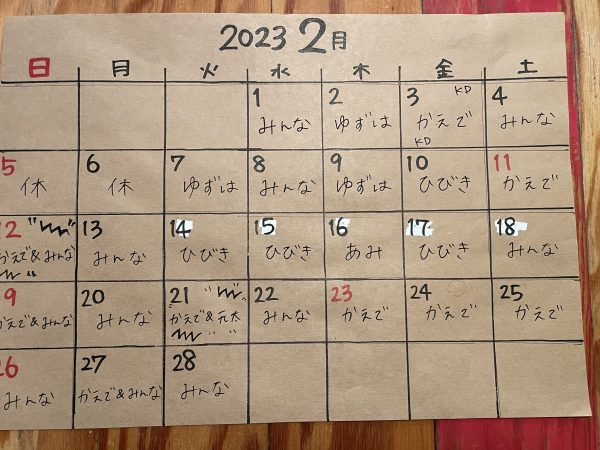 2023 2月
日 月 火 水 木 金 土
1 2 3 KD 4
みんな ゆずは かえで みんな
KD
5 6 7 8 9 10 11
休 休 ゆずは みんな ゆずは ひびき かえで
12 13 14 15 16 17 18
かえで&みんな みんな ひびき ひびき あみ ひびき みんな
9 20 21 22 23 24 25
かえで&みんな みんな かえで&元太 みんな かえで かえで かえで
26 27 28
みんな かえで&みんな みんな